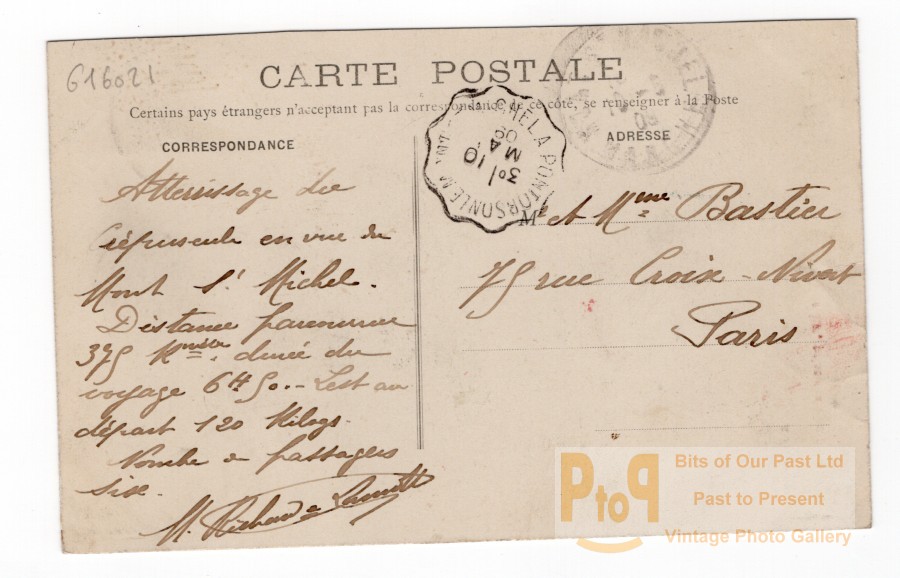 616021
CARTE POSTALE
Certains pays étrangers n'acceptant pas la correspondance de ce côté, se renseigner à la Poste
CORRESPONDANCE
ADRESSE
Atterrissage du
crépuscule en vue du
Mont St Michel.
Distance parcourue
375 Km durée du
voyage 6H 50. - Lest au
départ 120 Kilogs.
Nombre de passagers
six.
M. Richard
PONTORSON
30 10
MA
09
M et Mme Bastier
75 rue Croix-Nivert
Paris
PtoP
Bits of Our Past Ltd
Past to Present
Vintage Photo Gallery